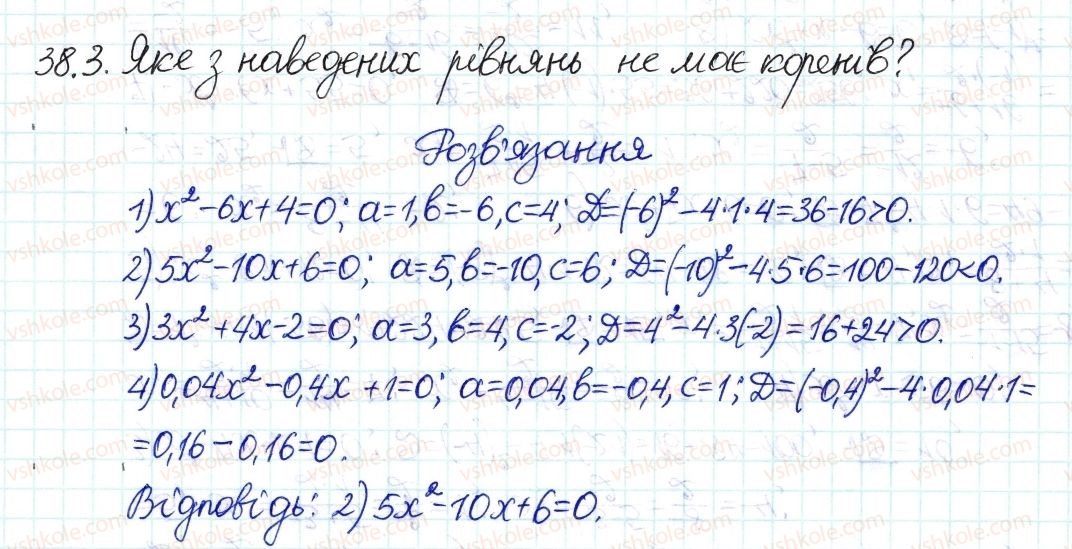 38.3. Яке з наведених рівнянь не має коренів?
Розв'язання
1) x²-6x+4=0; a=1, b=-6, c=4; D=(-6)²-4·1·4=36-16>0.
2) 5x²-10x+6=0; a=5, b=-10, c=6; D=(-10)²-4·5·6=100-120<0.
3) 3x²+4x-2=0; a=3, b=4, c=-2; D=4²-4·3(-2)=16+24>0.
4) 0,04x²-0,4x+1=0; a=0,04, b=-0,4, c=1; D=(-0,4)²-4·0,04·1=
=0,16-0,16=0.
Відповідь: 2) 5x²-10x+6=0.